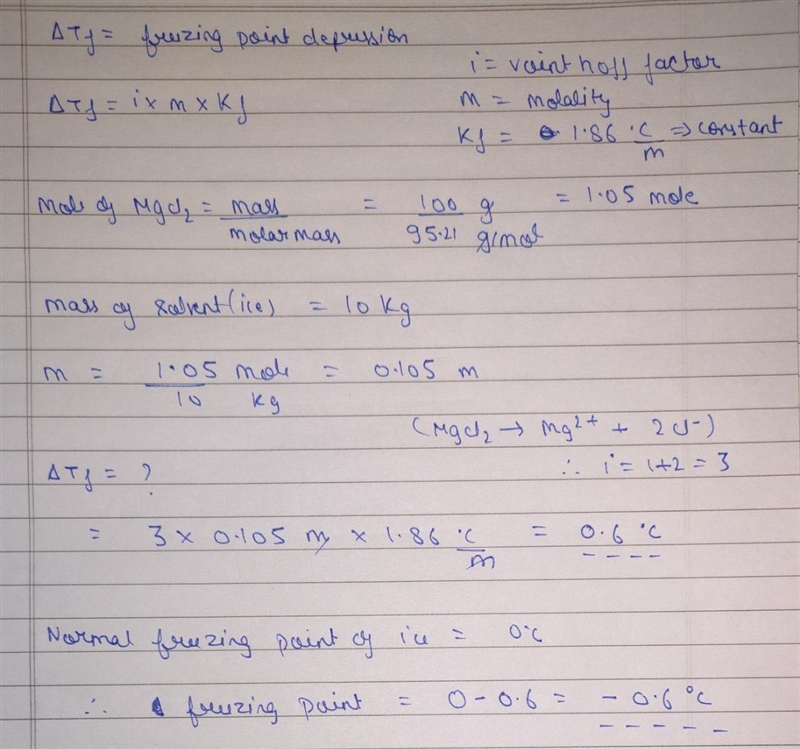 ΔTf = freezing point depression
i = vaint hoff factor
ΔTf = i x m x Kf
m = molality
Kf = 1.86 °C/m => constant
Mole of MgCl2 = mass/molar mass = 100 g/95.21 g/mol = 1.05 mole
mass of solvent (ice) = 10 Kg
m = 1.05 mole/10 Kg = 0.105 m
(MgCl2 → Mg2+ + 2Cl-)
ΔTf = ?
∴ i = 1+2 = 3
= 3 x 0.105 m x 1.86 °C/m = 0.6 °C
Normal freezing point of ice = 0°C
∴ freezing point = 0 - 0.6 = - 0.6 °C